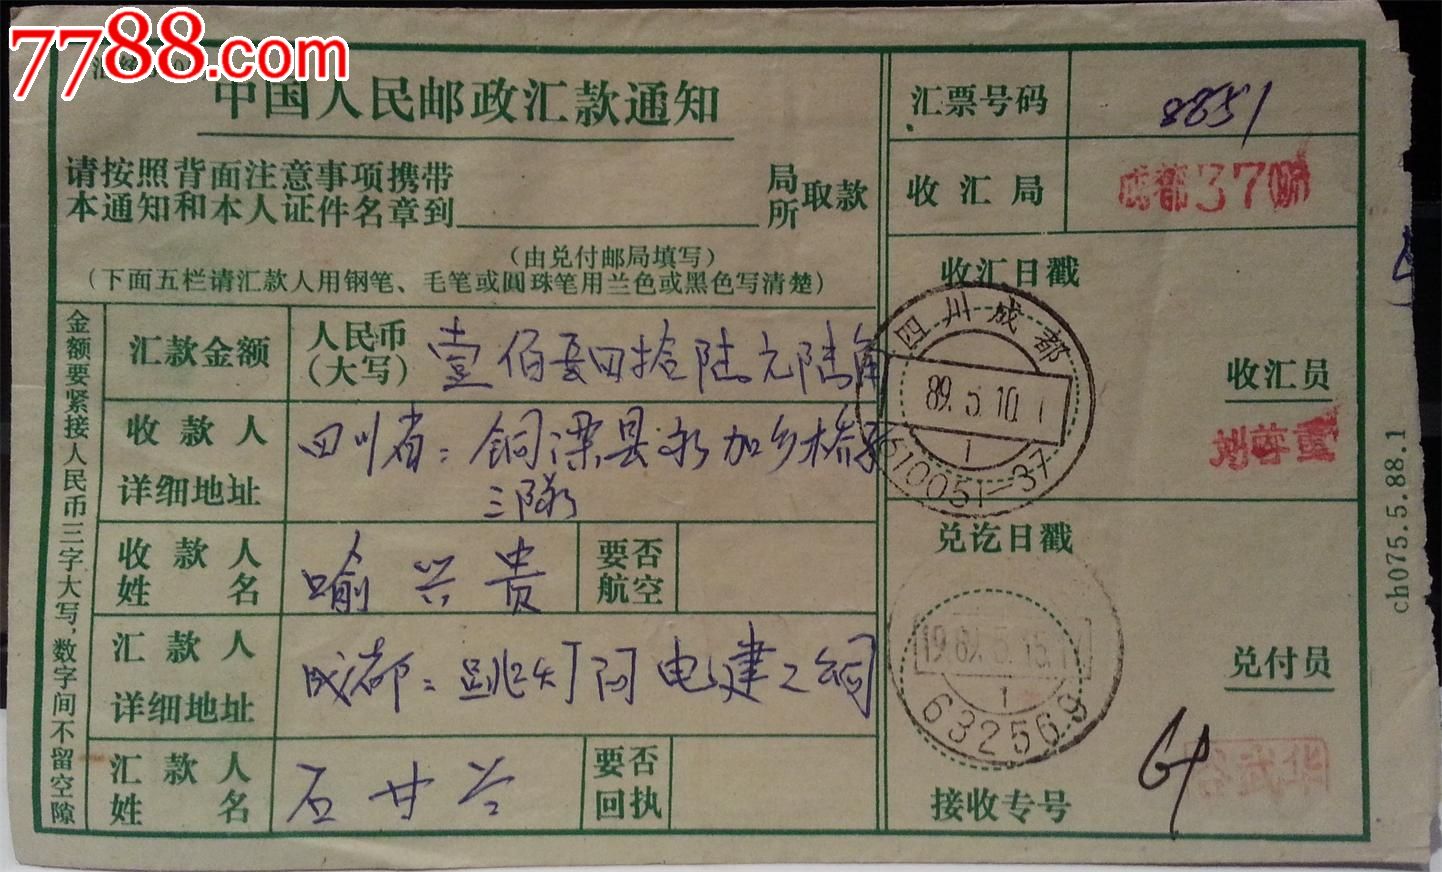 7788.com
中国人民邮政汇款通知
请按照背面注意事项携带
本通知和本人证件名章到
局
所
取款
(由兑付邮局填写)
(下面五栏请汇款人用钢笔、毛笔或圆珠笔用兰色或黑色写清楚)
金额要紧接人民币三字大写，数字间不留空隙
汇款金额
人民币
(大写)
壹佰 四拾陆元陆角
收款人
详细地址
四川省：铜梁县永加乡
三队
收款人
姓名
喻兴贵
要否
航空
汇款人
详细地址
成都：跳 电建
汇款人
姓名
石甘兴
要否
回执
汇票号码
8851
收汇局
成都37
收汇日戳
四川成都
89.5.10.
1
610051-37
收汇员
兑讫日戳
1989.5.15.
1
632569
兑付员
接收专号
ch075.5.88.1